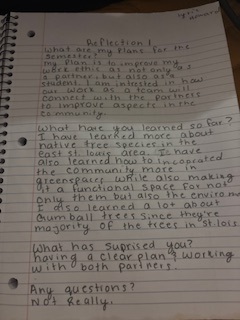 Reflection 1
What are my plans for the
semester?
My plan is to improve my
work ethic as not only as
a partner, but also as a
student. I am intrested in how
our work as a team will
connect with the partners
to improve aspects in the
community.
What have you learned so far?
I have learned more about
native tree species in the
East St. louis area. I have
also learned how to incoprated
the community more in
greenspaces while also making
it a functional space for not
only them but also the environ
I also learned a lot about
Gumball trees since they're
majority of the trees in St.lois.
What has suprised you?
having a clear plan & working
with both partners.
Any questions?
Not Really.